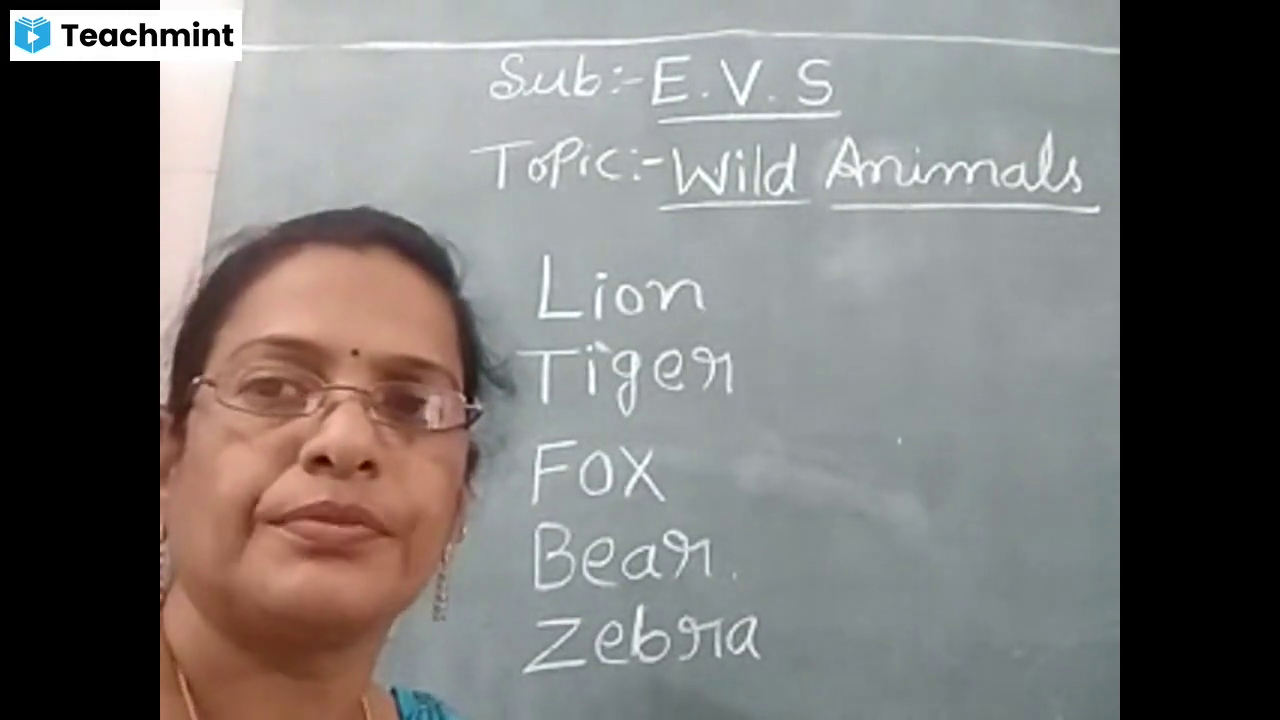 Teachmint
Sub:- E.V.S
Topic:- Wild Animals
Lion
Tiger
Fox
Bear.
Zebra